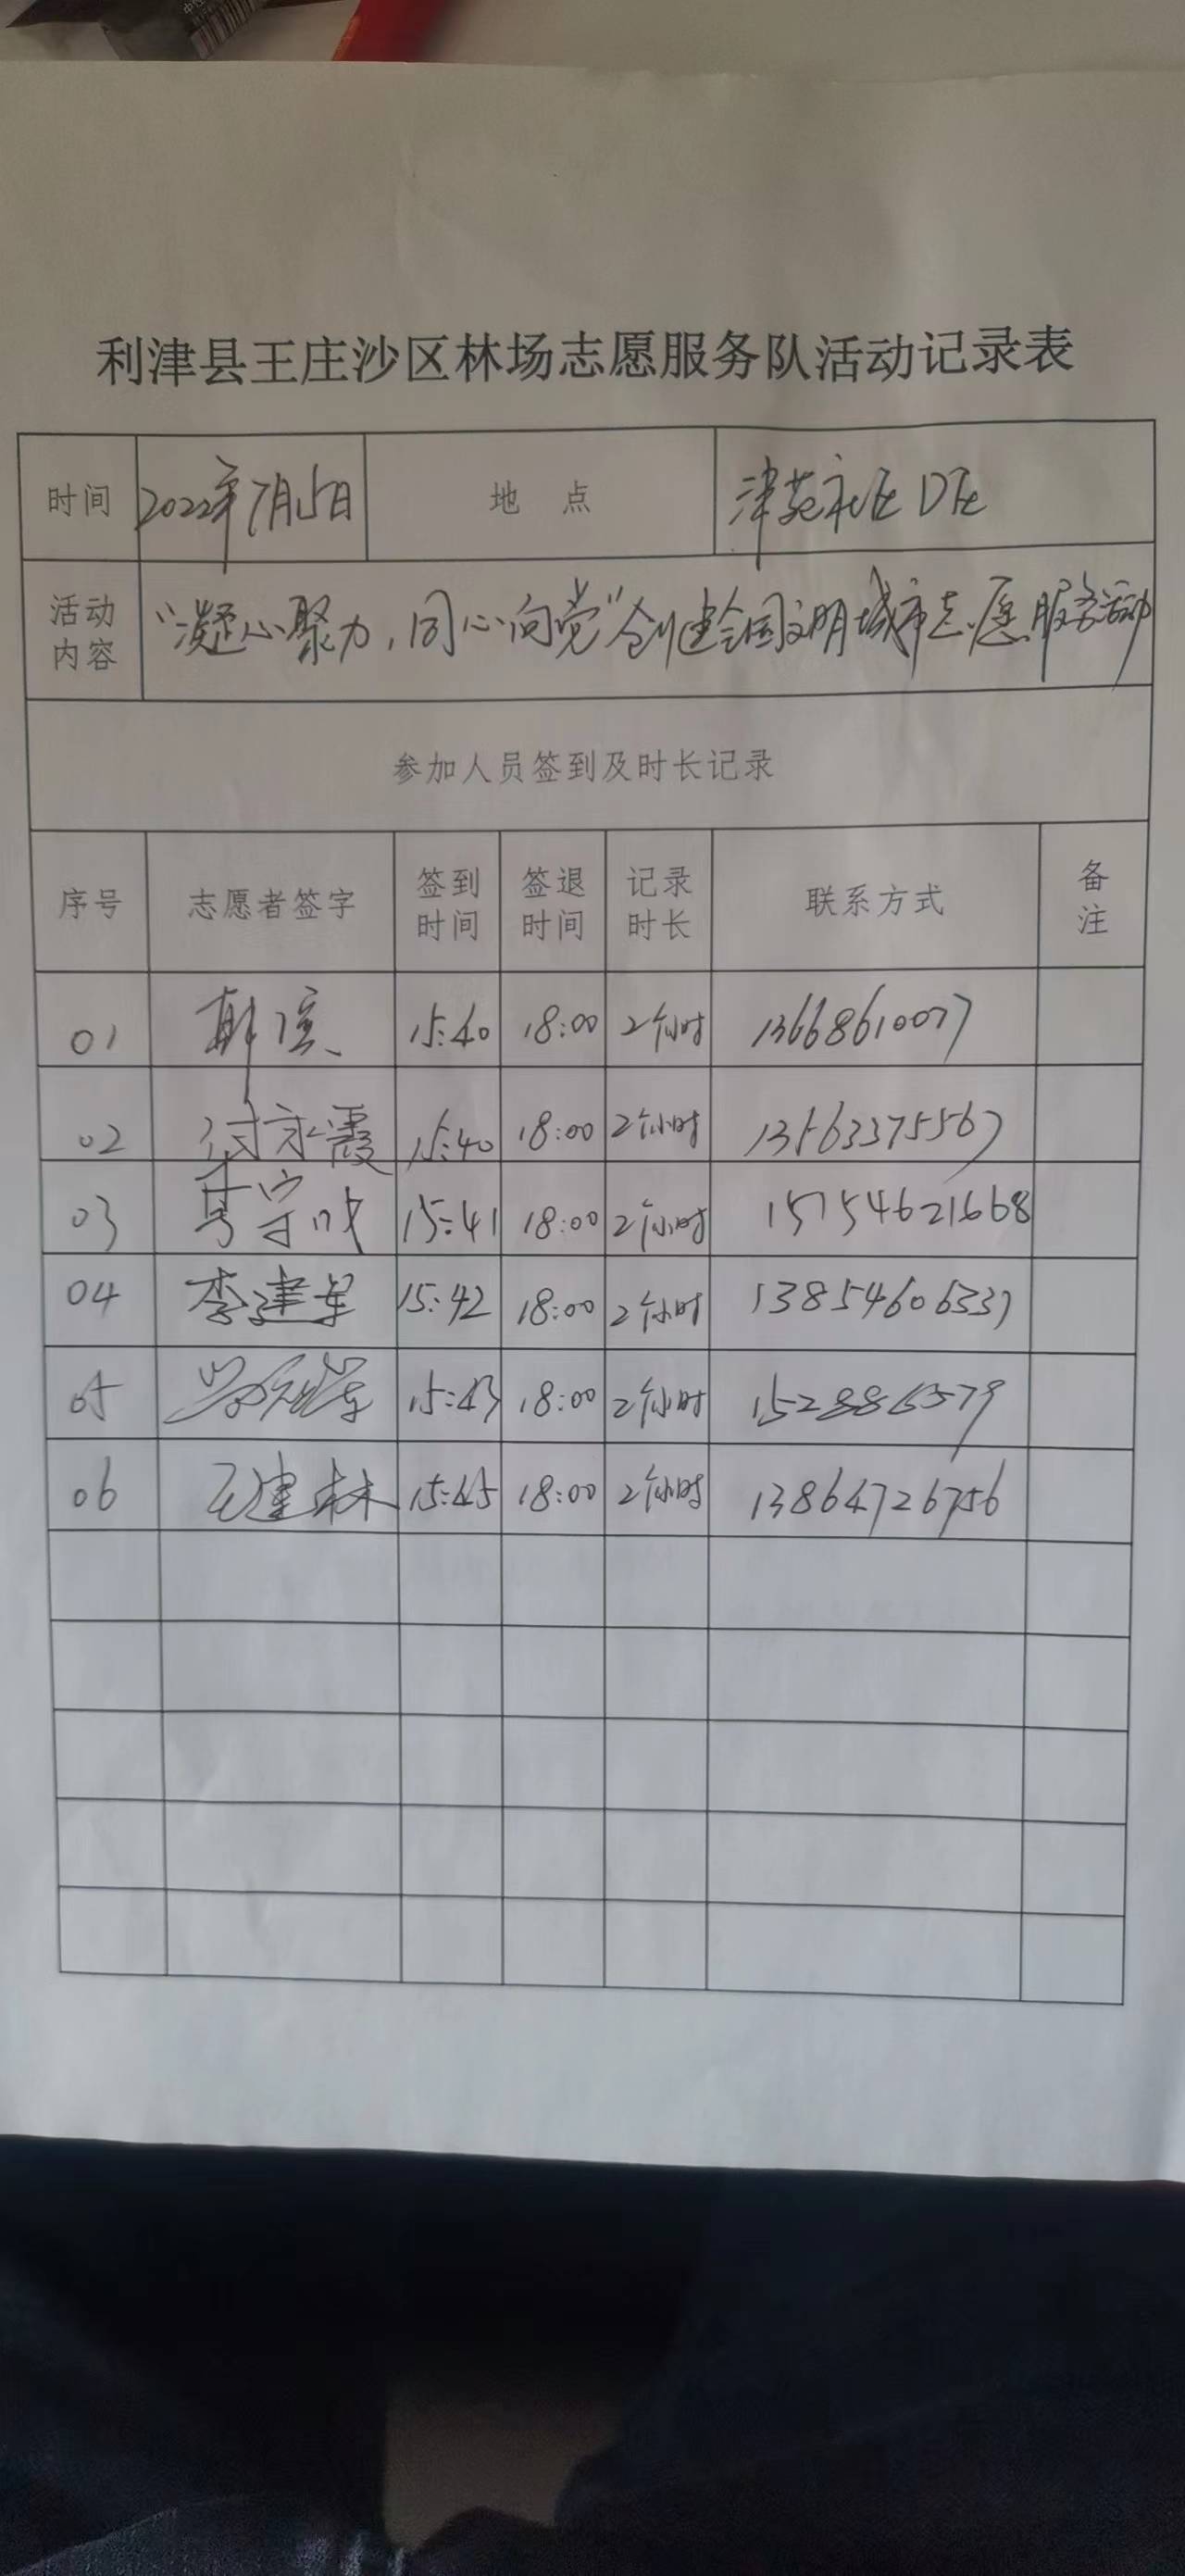 利津县王庄沙区林场志愿服务队活动记录表
时间 2022年7月15日 地 点 津苑社区D区
活动内容 “凝心聚力，同心向党”创建全国文明城市志愿服务活动
参加人员签到及时长记录
序号 志愿者签字 签到时间 签退时间 记录时长 联系方式 备注
01 韩滨 15:40 18:00 2个小时 13668610077
02 付永霞 15:40 18:00 2个小时 13563375567
03 15:41 18:00 2个小时 15754621668
04 李建军 15:42 18:00 2个小时 13854606337
05 15:43 18:00 2个小时
06 王建林 15:45 18:00 2个小时 13864726756